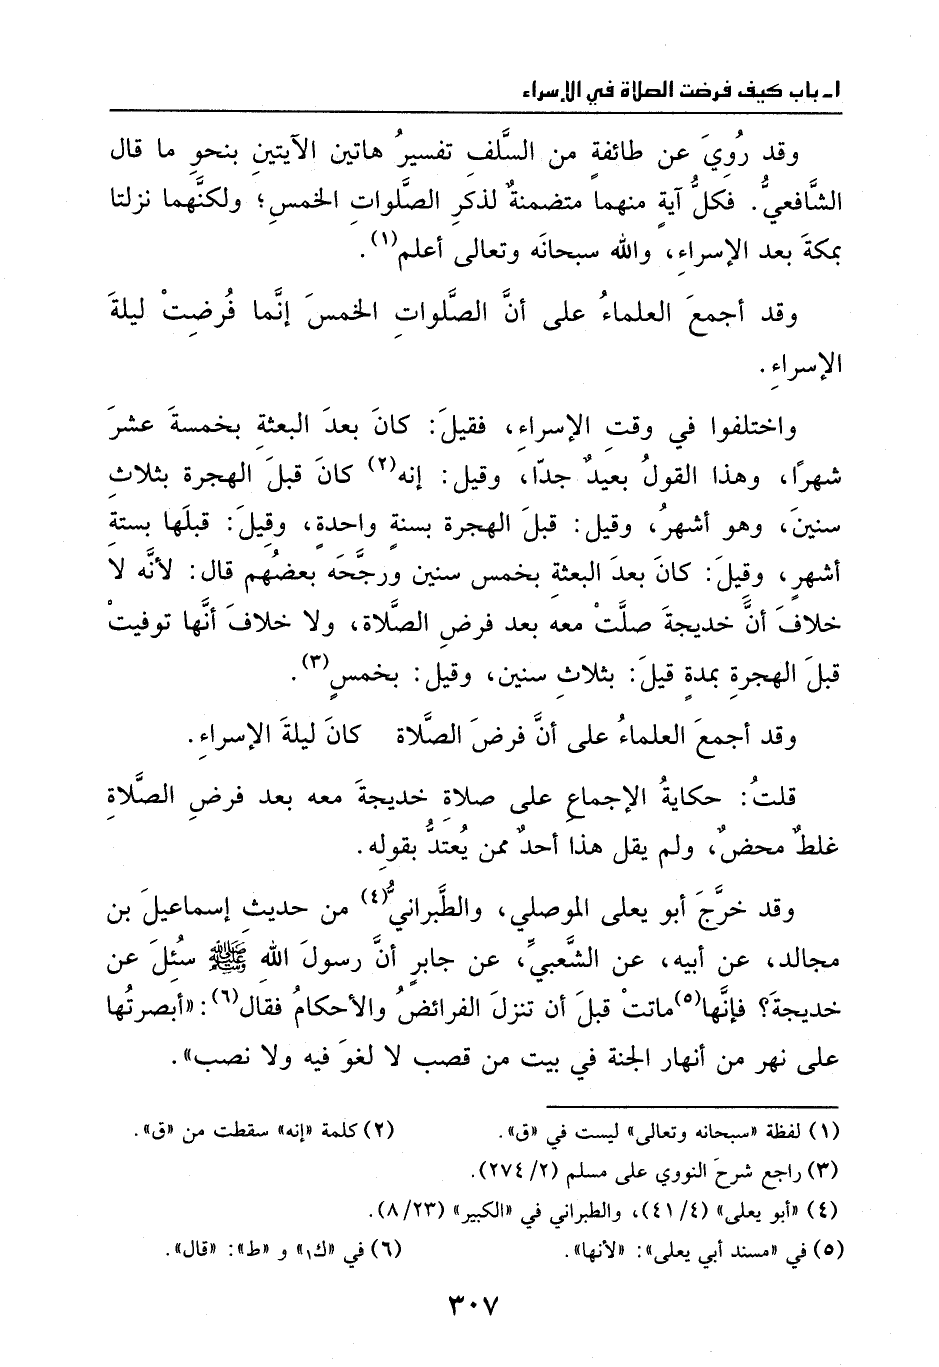 ١ـ باب كيف فرضت الصلاة في الإسراء
وقد رُويَ عن طائفةٍ من السَّلفِ تفسيرُ هاتين الآيتينِ بنحوِ ما قال
الشَّافعيُّ. فكلُّ آيةٍ منهما متضمنةٌ لذكرِ الصَّلواتِ الخمسِ؛ ولكنَّهما نزلتا
بمكةَ بعد الإسراءِ، والله سبحانَه وتعالى أعلم(١).
وقد أجمعَ العلماءُ على أنَّ الصَّلواتِ الخمسَ إنَّما فُرضِتْ ليلةَ
الإسراءِ.
واختلفوا في وقتِ الإسراءِ، فقيلَ: كانَ بعدَ البعثةِ بخمسةَ عشرَ
شهرًا، وهذا القولُ بعيدٌ جدّا، وقيل: إنه(٢) كانَ قبلَ الهجرة بثلاثِ
سنينَ، وهو أشهرُ، وقيل: قبلَ الهجرة بسنةٍ واحدةٍ، وقِيلَ: قبلَها بستةِ
أشهرٍ، وقِيلَ: كانَ بعدَ البعثةِ بخمس سنين ورجَّحَه بعضُهم قال: لأنَّه لا
خلافَ أنَّ خديجةَ صلَّتْ معه بعد فرضِ الصَّلاة، ولا خلافَ أنَّها توفيتْ
قبلَ الهجرةِ بمدةٍ قيلَ: بثلاثِ سنين، وقيل: بخمسٍ(٣).
وقد أجمعَ العلماءُ على أنَّ فرضَ الصَّلاة كانَ ليلةَ الإسراءِ.
قلتُ: حكايةُ الإجماعِ على صلاةِ خديجةَ معه بعد فرضِ الصَّلاةِ
غلطٌ محضٌ، ولم يقل هذا أحدٌ ممن يُعتدُّ بقولِه.
وقد خرَّجَ أبو يعلى الموصلي، والطَّبرانيُّ(٤) من حديثِ إسماعيلَ بن
مجالد، عن أبيه، عن الشَّعبيِّ، عن جابرٍ أنَّ رسولَ اللهِ ﷺ سُئِلَ عن
خديجةَ؟ فإنَّها(٥)ماتتْ قبلَ أن تنزلَ الفرائضُ والأحكامُ فقال(٦): «أبصرتُها
على نهر من أنهار الجنة في بيت من قصب لا لغوَ فيه ولا نصب».
(١) لفظة «سبحانه وتعالى» ليست في «ق». (٢) كلمة «إنه» سقطت من «ق».
(٣) راجع شرحَ النووي على مسلم (٢/ ٢٧٤).
(٤) «أبو يعلى» (٤/ ٤١)، والطبراني في «الكبير» (٢٣/ ٨).
(٥) في «مسند أبي يعلى»: «لأنها». (٦) في «ك١» و «ط»: «قال».
٣٠٧